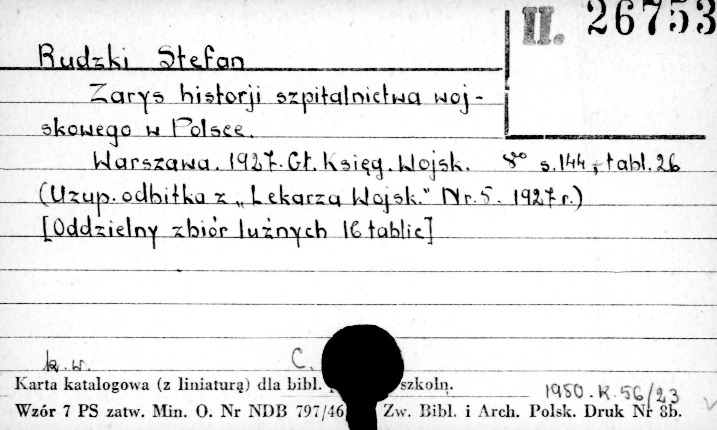 II. 26753
Rudzki Stefan
Zarys historji szpitalnictwa woj-
skowego w Polsce.
Warszawa. 1927. Gł. Księg. Wojsk. 8° s. 144, tabl. 26
(Uzup. odbitka z „Lekarza Wojsk." Nr. 5. 1927 r.)
[Oddzielny zbiór luźnych 16 tablic]
k. w. C.
Karta katalogowa (z liniaturą) dla bibl. szkoln.
1950. K. 56/23
Wzór 7 PS zatw. Min. O. Nr NDB 797/46 Zw. Bibl. i Arch. Polsk. Druk Nr 8b.